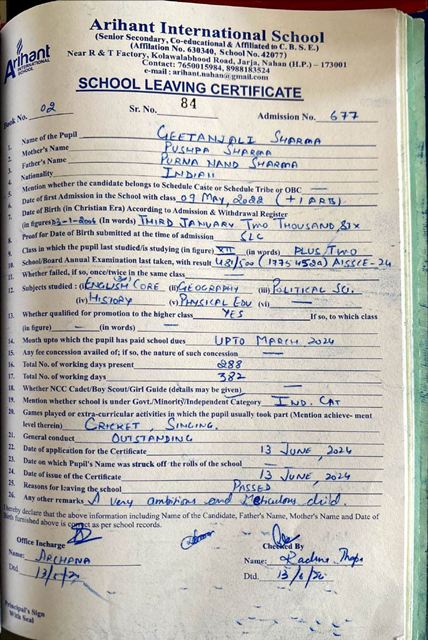 Arihant International School
(Senior Secondary, Co-educational & Affiliated to C. B. S. E.)
(Affiliation No. 630340, School No.42077)
Near R & T Factory, Kolawalabhood Road, Jarja, Nahan (H.P.) – 173001
Contact: 7650015984, 8988183524
e-mail : arihant.nahan@gmail.com
Arihant
INTERNATIONAL
SCHOOL
SCHOOL LEAVING CERTIFICATE
Book No. 02 Sr. No. 84 Admission No. 677
1. Name of the Pupil GEETANJALI SHARMA
2. Mother's Name PUSHPA SHARMA
3. Father's Name PURNA NAND SHARMA
Nationality INDIAN
4. Mention whether the candidate belongs to Schedule Caste or Schedule Tribe or OBC —
Date of first Admission in the School with class 09 MAY, 2022 (+1 ARTS)
7. Date of Birth (in Christian Era) According to Admission & Withdrawal Register
(in figures) 03-1-2006 (In words) THIRD JANUARY TWO THOUSAND SIX
8. Proof for Date of Birth submitted at the time of admission SLC
9. Class in which the pupil studied/is studying (in figure) XII (in words) PLUS/TWO
10. School/Board Annual Examination last taken, with result 481/500 AISSCE-24
11. Whether failed, if so, once/twice in the same class
12. Subjects studied : (i) ENGLISH CORE (ii) GEOGRAPHY (iii) POLITICAL SC.
(iv) HISTORY (v) PHYSICAL EDU (vi) —
13. Whether qualified for promotion to the higher class YES If so, to which class
(in figure) — (in words) —
14. Month upto which the pupil has paid school dues UPTO MARCH, 2024
15. Any fee concession availed of; if so, the nature of such concession —
16. Total No. of working days present 288
17. Total No. of working days 382
18. Whether NCC Cadet/Boy Scout/Girl Guide (details may be given) —
19. Mention whether school is under Govt./Minority/Independent Category IND. CAT
20. Games played or extra-curricular activities in which the pupil usually took part (Mention achieve- ment
level therein) CRICKET, SINGING.
21. General conduct OUTSTANDING
22. Date of application for the Certificate 13 JUNE, 2024
23. Date on which Pupil's Name was struck off the rolls of the school —
24. Date of issue of the Certificate 13 JUNE, 2024
25. Reasons for leaving the school PASSED
26. Any other remarks A very ambitious and Meticulous child.
I hereby declare that the above information including Name of the Candidate, Father's Name, Mother's Name and Date of
Birth furnished above is correct as per school records.
Office Incharge Checked By
Name: ARCHANA Name:
Dtd. Dtd.
Principal's Sign
With Seal